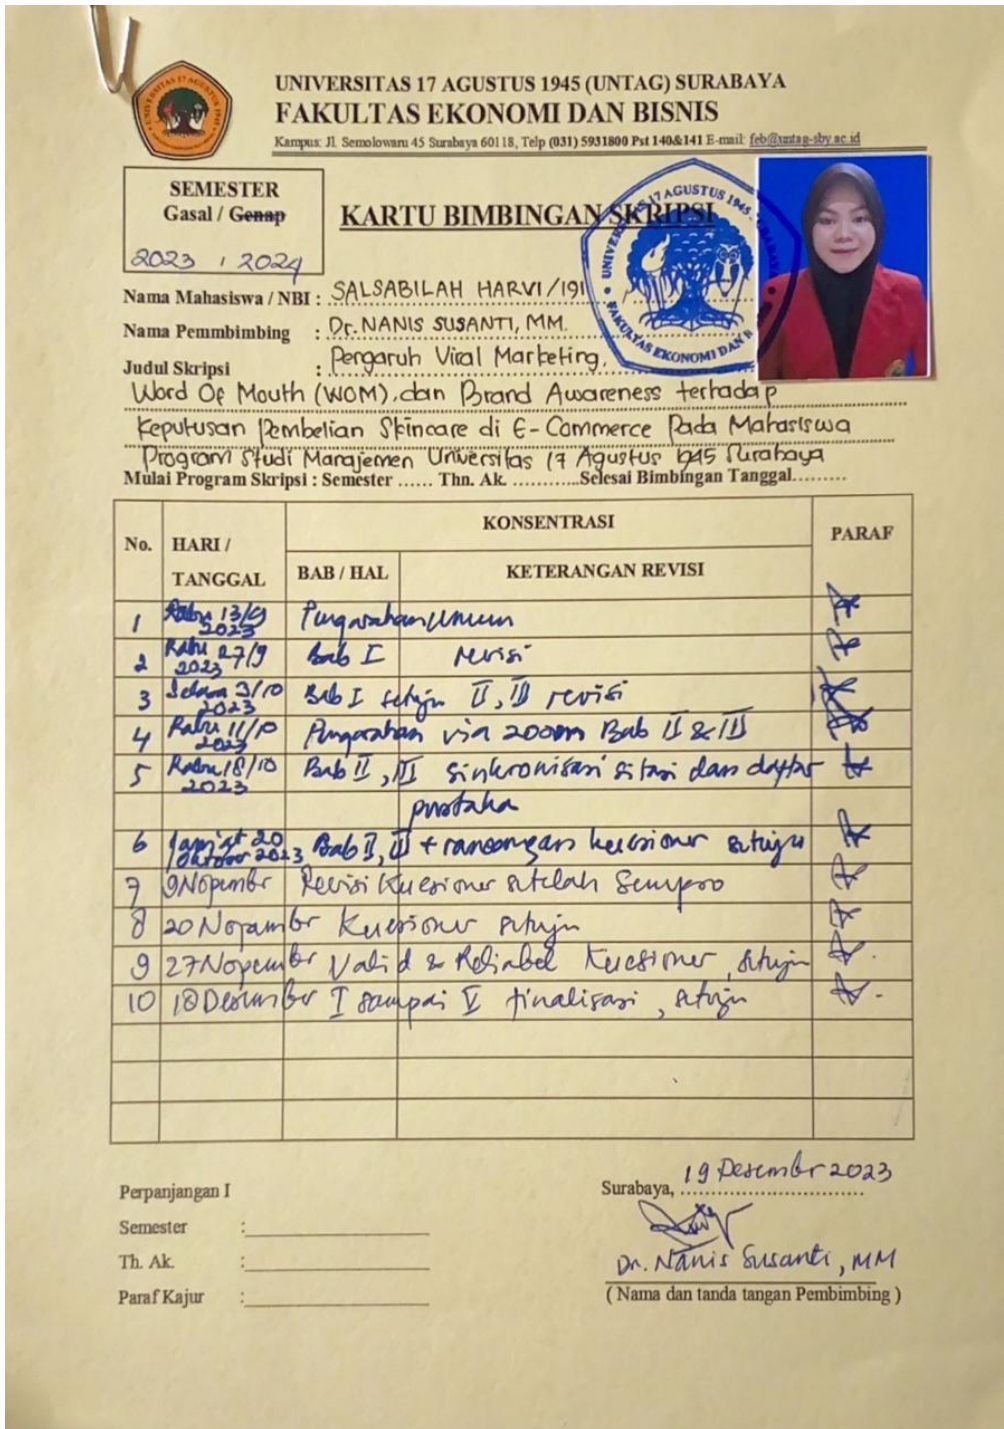 UNIVERSITAS 17 AGUSTUS 1945 (UNTAG) SURABAYA
FAKULTAS EKONOMI DAN BISNIS
Kampus: Jl. Semolowaru 45 Surabaya 60118, Telp (031) 5931800 Pst 140&141 E-mail: feb@untag-sby.ac.id
SEMESTER
Gasal / Genap
2023 / 2024
KARTU BIMBINGAN SKRIPSI
UNIVERSITAS 17 AGUSTUS 1945 SURABAYA
FAKULTAS EKONOMI DAN B
Nama Mahasiswa / NBI : SALSABILAH HARVI/191
Nama Pemmbimbing : Dr. NANIS SUSANTI, MM.
Judul Skripsi : Pengaruh Viral Marketing,
Word Of Mouth (WOM), dan Brand Awareness terhadap
Keputusan Pembelian Skincare di E-Commerce Pada Mahasiswa
Program Studi Manajemen Universitas 17 Agustus 1945 Surabaya
Mulai Program Skripsi : Semester ...... Thn. Ak. ...........Selesai Bimbingan Tanggal.........
No. HARI / TANGGAL KONSENTRASI PARAF
BAB / HAL KETERANGAN REVISI
1 Rabu 13/9 2023 Pengarahan Umum
2 Rabu 27/9 2023 Bab I revisi
3 Selasa 3/10 2023 Bab I setuju II, III revisi
4 Rabu 11/10 2023 Pengarahan via zoom Bab II & III
5 Rabu 18/10 2023 Bab II, III sinkronisasi sitasi dan daftar
pustaka
6 Jum'at 20 Oktober 2023 Bab II, III + rancangan kuesioner setuju
7 9 Nopember Revisi Kuesioner setelah Sempro
8 20 Nopember Kuesioner setuju
9 27 Nopember Valid & Reliabel Kuesioner, setuju
10 18 Desember I sampai V finalisasi, setuju
Perpanjangan I
Semester :
Th. Ak. :
Paraf Kajur :
Surabaya, 19 Desember 2023
Dr. Nanis Susanti, MM
( Nama dan tanda tangan Pembimbing )